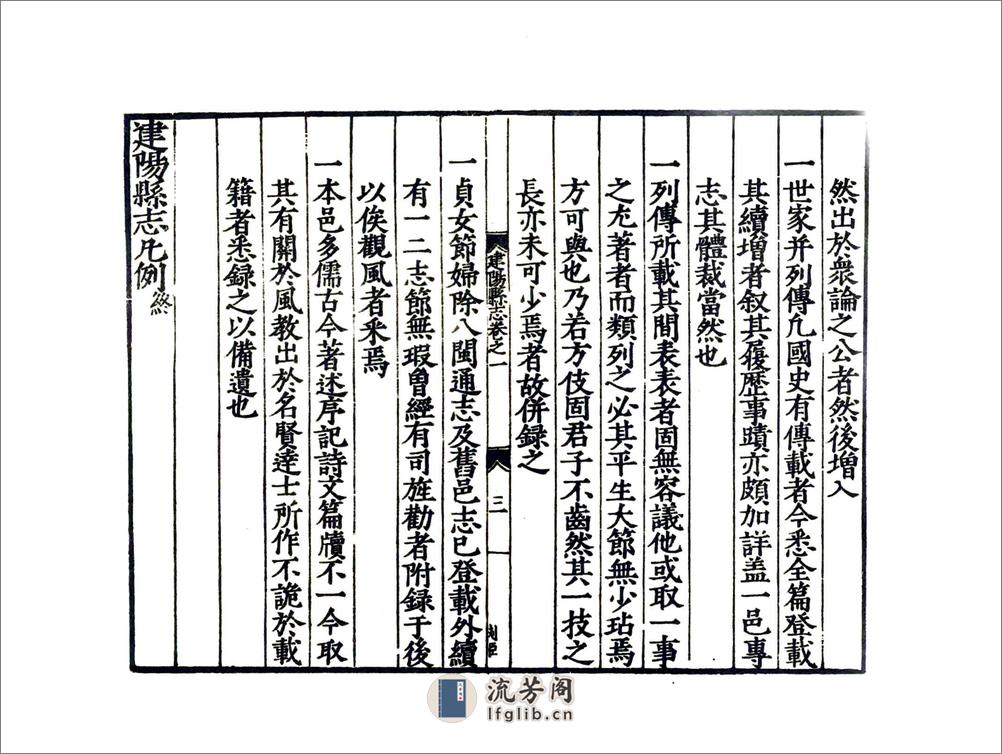 然出於衆論之公者然後増入
一世家并列傳凢國史有傳載者今悉全篇登載
其續増者叙其履歷事蹟亦頗加詳盖一邑專
志其體裁當然也
一列傳所載其間表表者固無容議他或取一事
之尤著者而類列之必其平生大節無少玷焉
方可與也乃若方伎固君子不齒然其一技之
長亦未可少焉者故併録之
建陽縣志卷之一
三
一貞女節婦除八閩通志及舊邑志已登載外續
有一二志節無瑕曽經有司旌勸者附録于後
以俟觀風者釆焉
一本邑多儒古今著述序記詩文篇牘不一今取
其有關於風教出於名賢達士所作不詭於載
籍者悉録之以備遺也
建陽縣志凡例 終
流芳阁
lfglib.cn